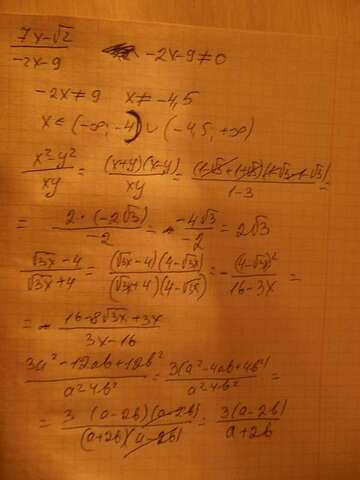 (7x-√2)/(-2x-9)   -2x-9≠0
-2x≠9   x≠-4,5
x∈(-∞; -4)∪(-4,5; +∞)
(x²-y²)/(xy) = ((x+y)(x-y))/(xy) = /(1-3) =
= (2·(-2√3))/(-2) = (-4√3)/(-2) = 2√3
(√3x-4)/(√3x+4) = ((√3x-4)(4-√3x))/((√3x+4)(4-√3x)) = -(4-√3x)²/(16-3x) =
= (16-8√3x+3x)/(3x-16)
(3a²-12ab+12b²)/(a²-4b²) = (3(a²-4ab+4b²))/(a²-4b²) =
= (3(a-2b)(a-2b))/((a+2b)(a-2b)) = (3(a-2b))/(a+2b)